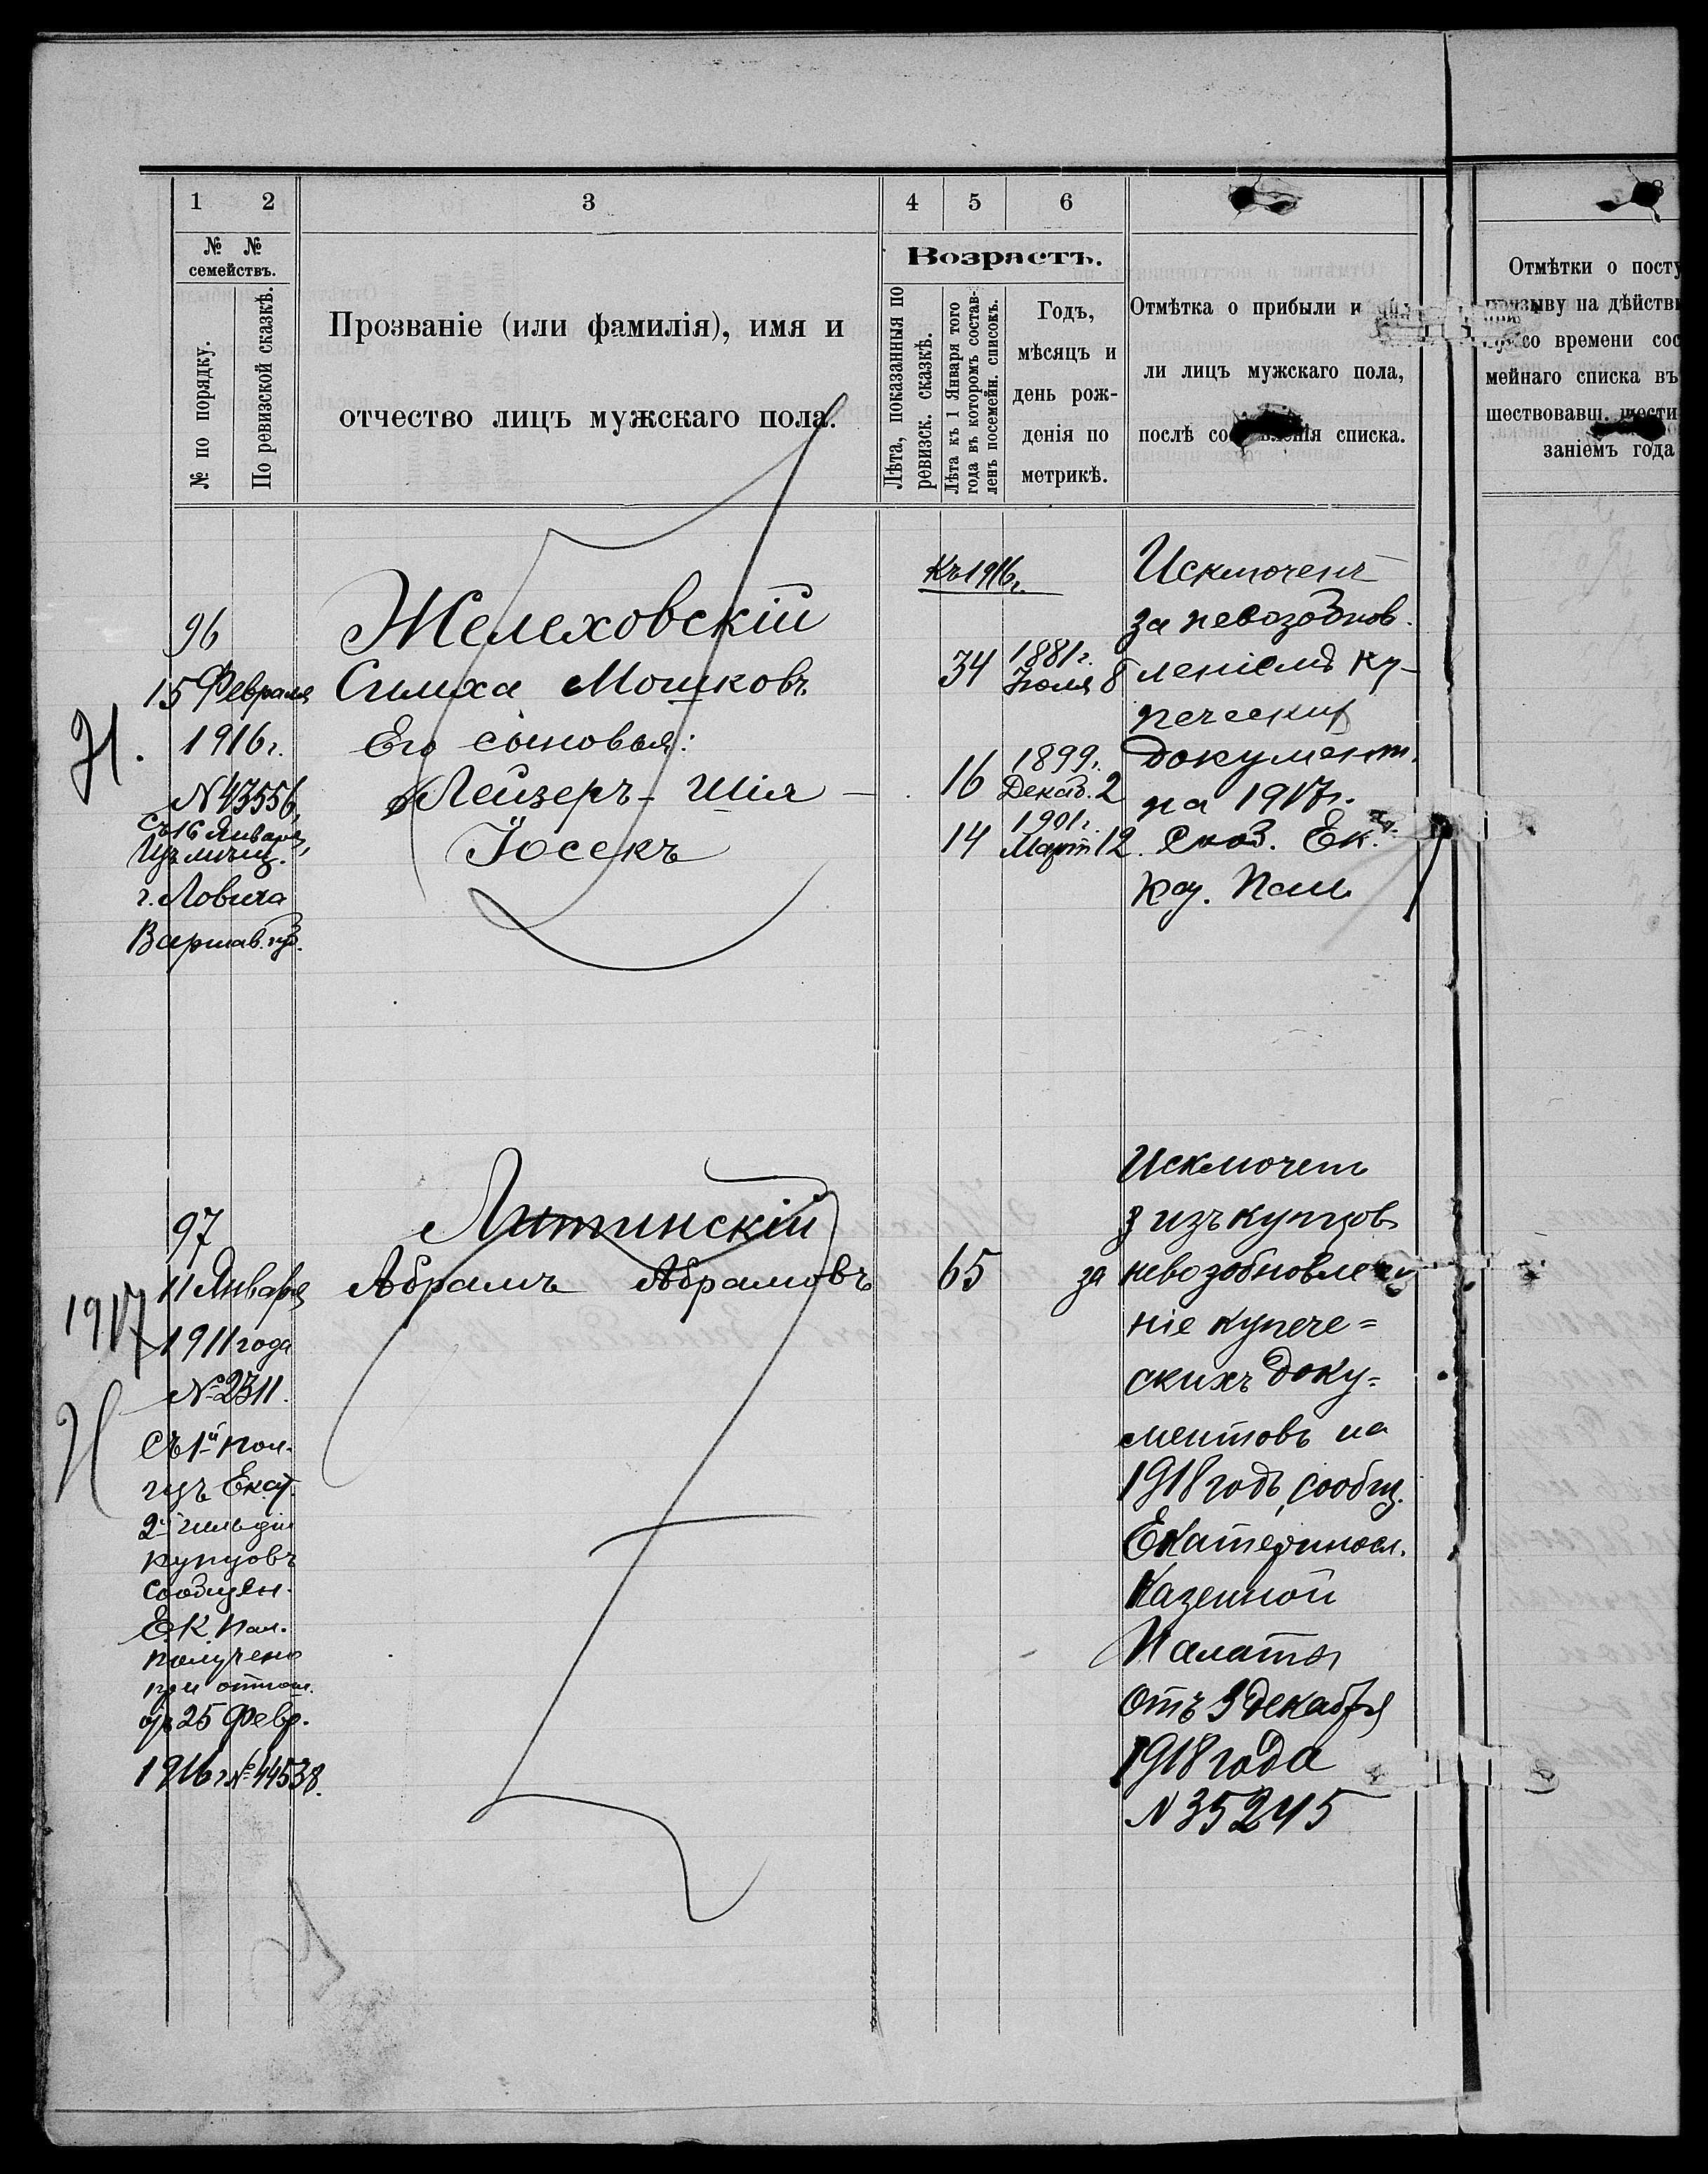 1 2 3 4 5 6
№ № семействъ.
№ по порядку.
По ревизской сказкѣ.
Прозваніе (или фамилія), имя и
отчество лицъ мужскаго пола.
Возрастъ.
Лѣта, показанныя по
ревизск. сказкѣ.
Лѣта къ 1 Января того
года въ которомъ состав-
ленъ посемейн. списокъ.
Годъ,
мѣсяцъ и
день рож-
денія по
метрикѣ.
Отмѣтка о прибыли и
ли лицъ мужскаго пола,
послѣ составленія списка.
8
Отмѣтки о посту
призыву на дѣйстви
со времени сос
мейнаго списка въ
шествовавш. шести
заніемъ года
Н.
96
15 Февраля
1916 г.
N 43556,
съ 16 Января,
изъ мѣщ.
г. Ловича
Варшав. губ.
Желеховскій
Симха Мошковъ
Его сыновья:
Лейзеръ-Шія —
Іосекъ
Къ 1916 г.
34 1881 г.
Іюля 8
16 1899.
Декаб. 2
14 1901 г.
Март 12.
Исключенъ
за невозобнов-
леніемъ ку-
печескихъ
документ.
на 1917 г.
Сооб. Ек.
Каз. Пал.
97
11 Января
1917
1911 года
№ 2311.
Съ 1й пол.
изъ Екат.
2й гильдіи
купцовъ
сообщен.
Е.К. Пал.
получено
при отнош.
25 Февр.
1916 г. № 44538.
Н
Литинскій
Абрамъ Абрамовъ
65
Исключенъ
изъ купцовъ
за невозобновле
ніе купече=
скихъ доку=
ментовъ на
1918 годъ, сообщ.
Екатериносл.
Казенной
Палаты
отъ 3 декабря
1918 года
N 35245